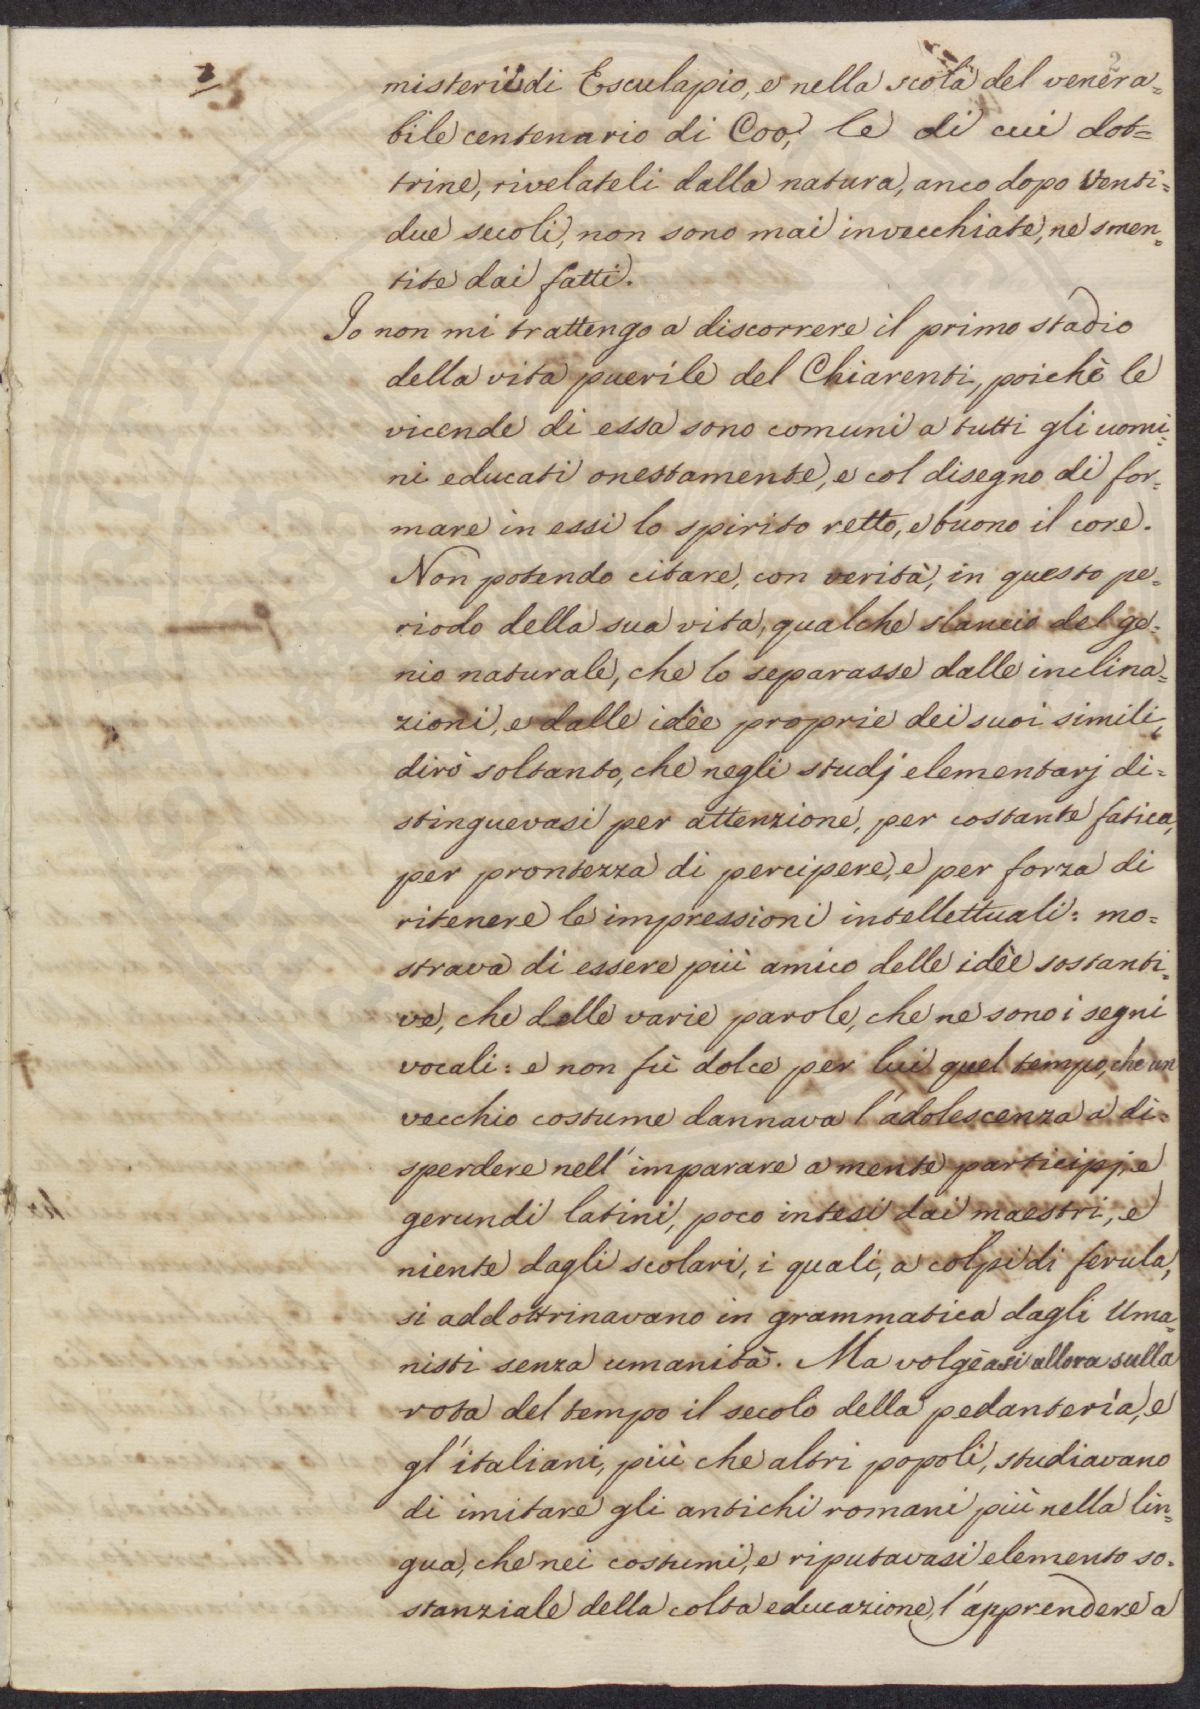 2
misterii di Esculapio, e nella scola del venera=
bile centenario di Coo, le di cui dot=
trine, rivelateli dalla natura, anco dopo venti=
due secoli, non sono mai invecchiate, ne smen=
tite dai fatti.
Io non mi trattengo a discorrere il primo stadio
della vita puerile del Chiarenti, poichè le
vicende di essa sono comuni a tutti gli uomi=
ni educati onestamente, e col disegno di for=
mare in essi lo spirito retto, e buono il core.
Non potendo citare, con verità, in questo pe=
riodo della sua vita, qualche slancio del ge=
nio naturale, che lo separasse dalle inclina=
zioni, e dalle idèe proprie dei suoi simili,
dirò soltanto, che negli studj elementarj di=
stinguevasi per attenzione, per costante fatica,
per prontezza di percipere, e per forza di
ritenere le impressioni intellettuali: mo=
strava di essere più amico delle idèe sostanti=
ve, che delle varie parole, che ne sono i segni
vocali: e non fù dolce per lui quel tempo, che un
vecchio costume dannava l'adolescenza a di=
sperdere nell'imparare a mente participj, e
gerundi latini, poco intesi dai maestri, e
niente dagli scolari, i quali, a colpi di ferula,
si addottrinavano in grammatica dagli Uma=
nisti senza umanità. Ma volgèasi allora sulla
rota del tempo il secolo della pedanterìa, e
gl'italiani, più che altri popoli, studiavano
di imitare gli antichi romani più nella lin=
gua, che nei costumi, e riputavasi elemento so=
stanziale della colta educazione, l'apprendere a